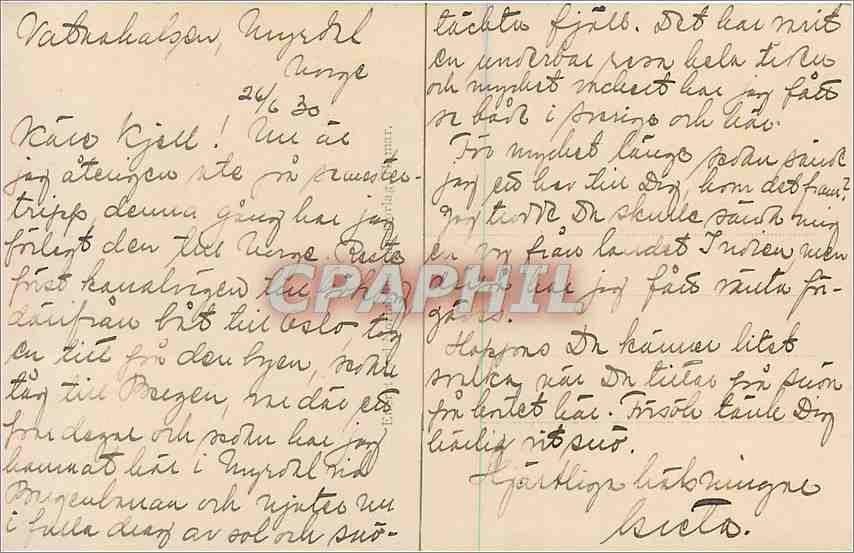 Vatnahalsen, Myrdal
Norge
26/6 30
Käre Kjell! Nu är
jag återigen ute på semester-
tripp, denna gång har jag
förlagt den till Norge. Reste
först kanalvägen till
därifrån båt till Oslo, tog
en titt på den byen, sedan
tåg till Bergen, var där ett
par dagar och sedan har jag
hamnat här i Myrdal vid
Bergenbanan och njuter nu
i fulla drag av sol och snö-
täckta fjäll. Det har varit
en underbar resa hela tiden
och mycket vackert har jag fått
se både i Sverige och här.
För mycket länge sedan sände
jag ett brev till Dig, kom det fram?
Jag trodde Du skulle sända mig
en vy från landet Indien, men
har jag fått vänta för-
gäves.
Hoppas Du känner litet
svalka, när Du tittar på snön
på kortet här. Försök tänk Dig
härlig vit snö.
Hjärtliga hälsningar
Greta.
CPAPHIL